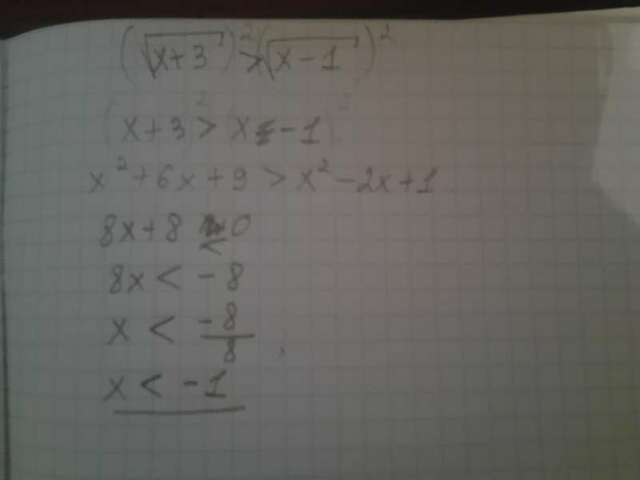 (√x+3)² > (√x-1)²
x+3 > x-1
x²+6x+9 > x²-2x+1
8x+8 < 0
8x < -8
x < -8/8
x < -1